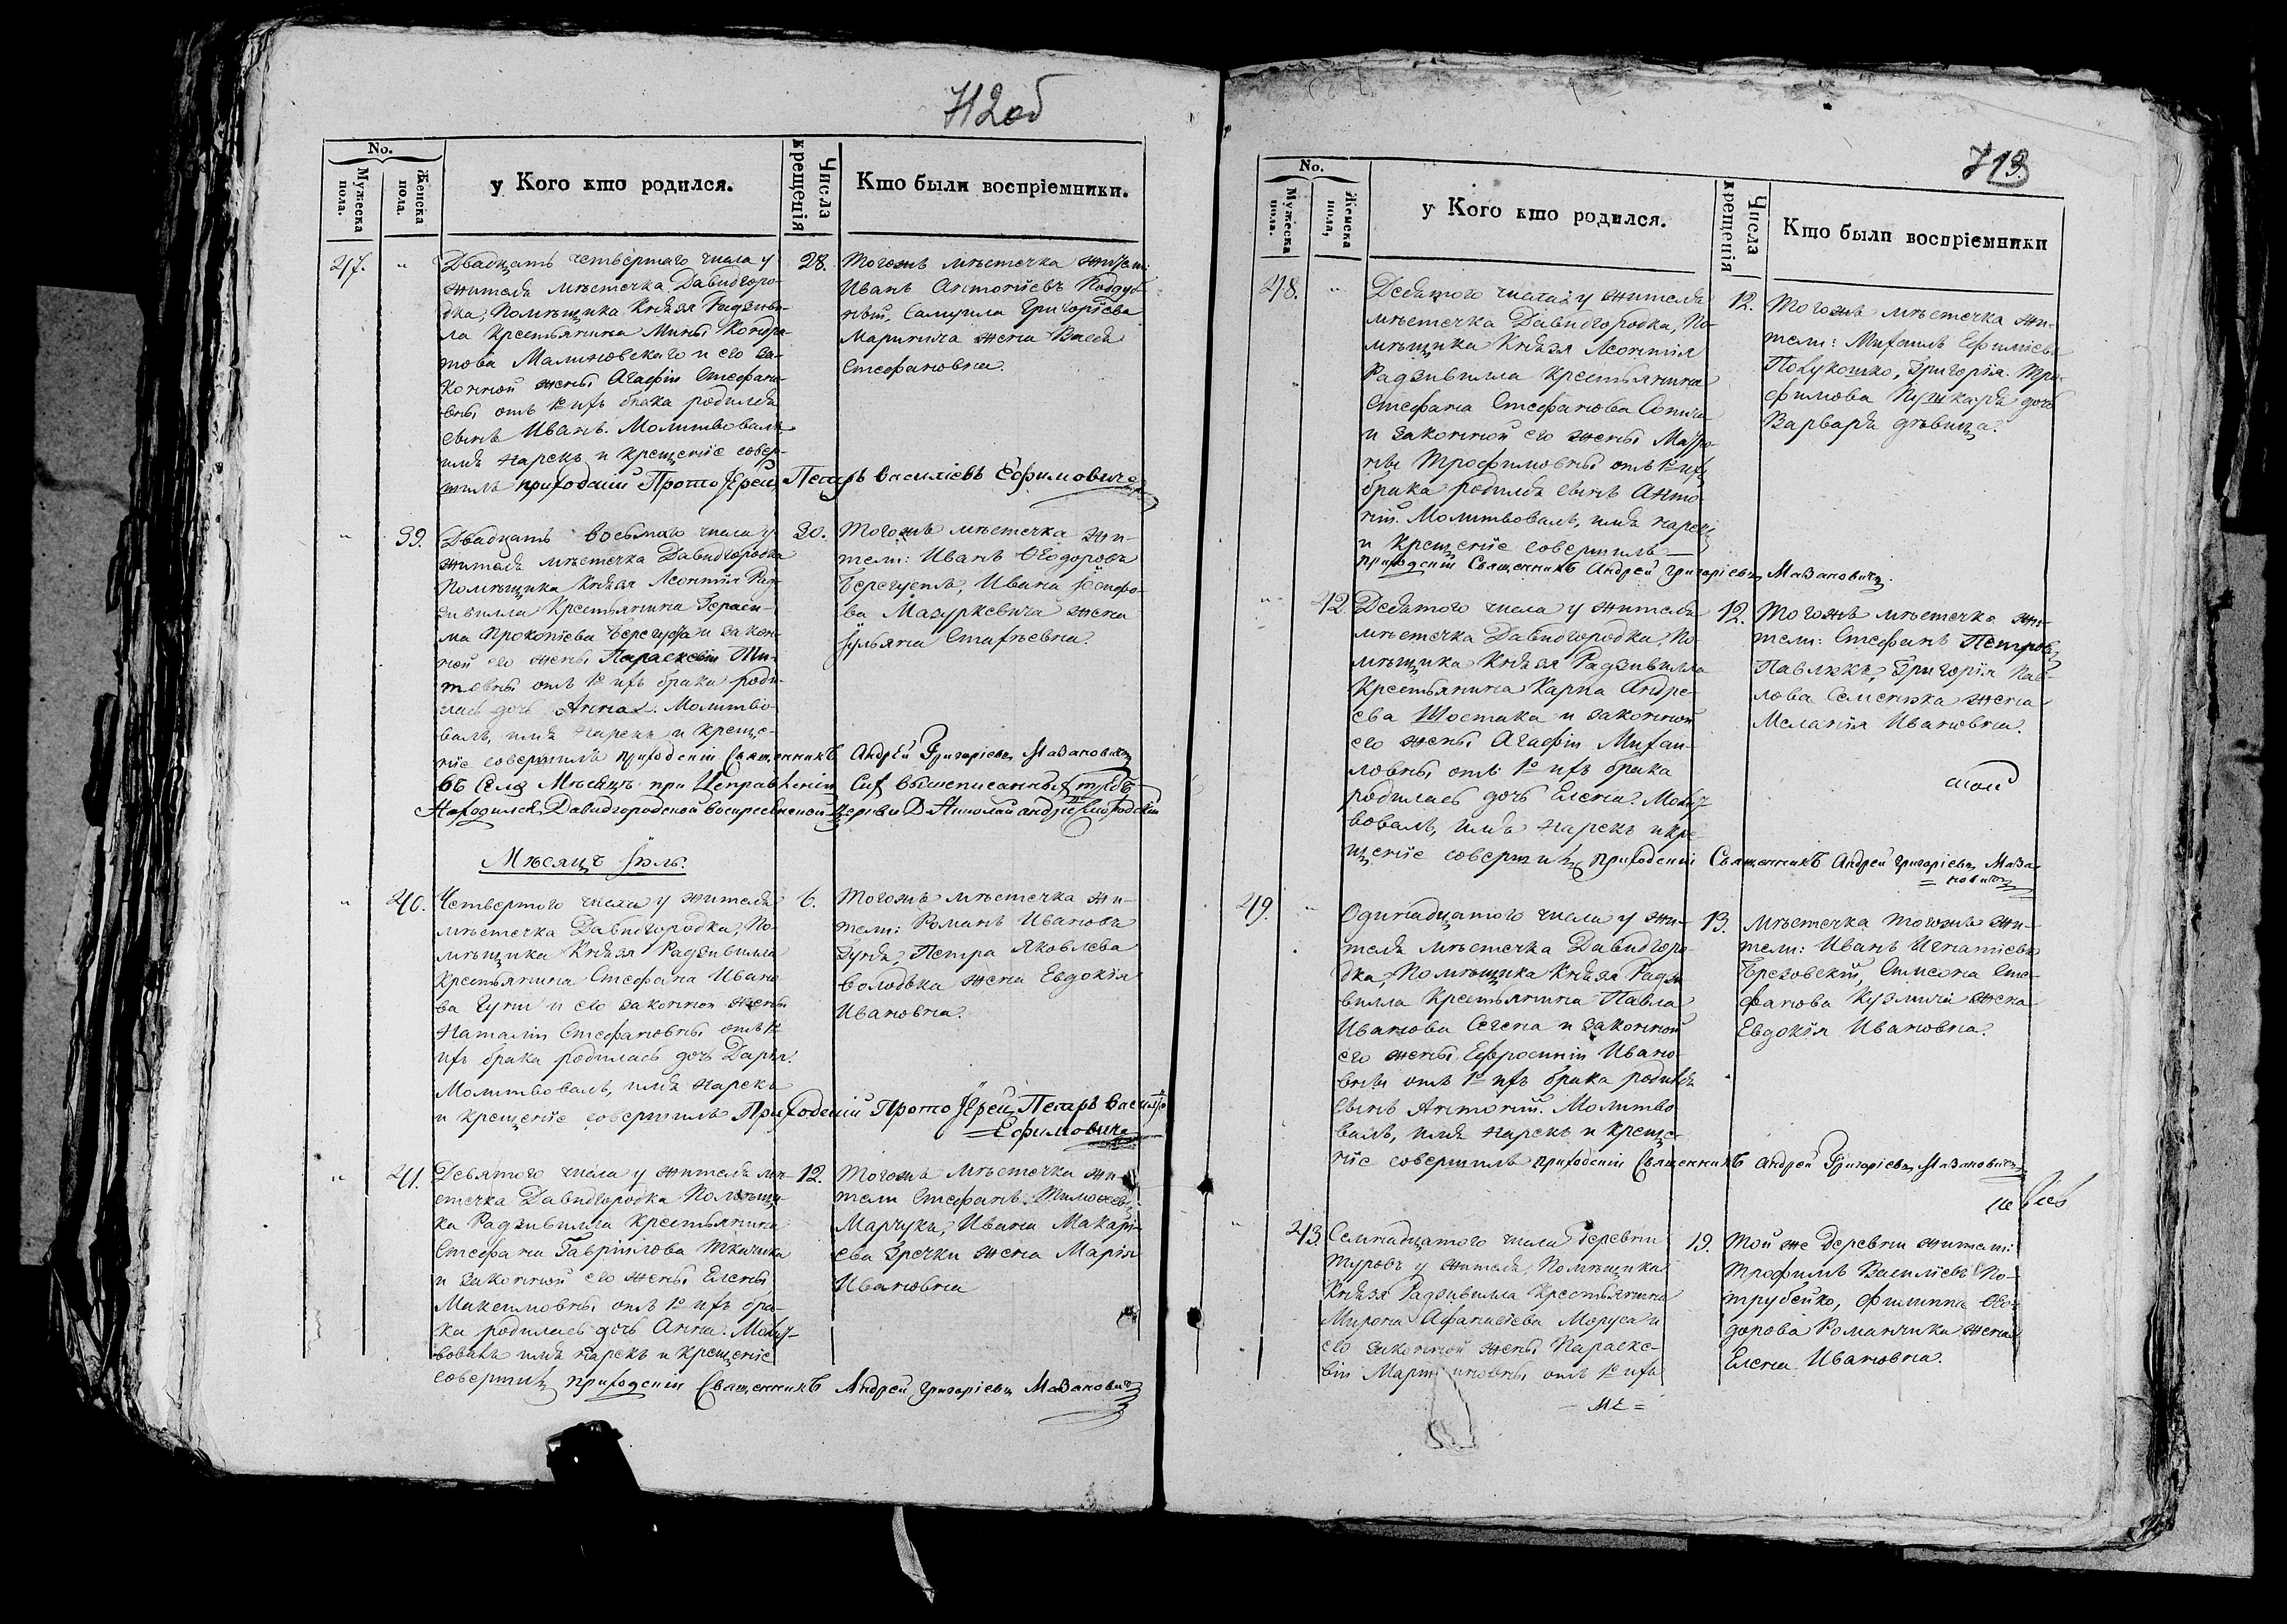 712об
No.
Мужеска пола.
Женска пола.
у Кого кто родился.
Числа крещенія
Кто были воспріемники.
47.
Двадцать четвертаго числа у
жителя мѣстечка Давидгоро-
дка, Помѣщика Князя Радзиви-
ла Крестьянина Мины Кондра-
това Малиновскаго и его за-
конной жены Агафіи Стефано-
вны отъ 1го ихъ брака родился
сынъ Иванъ. Молитвовалъ
имя нарекъ и крещеніе совер-
шилъ приходскій Прото Іерей Петръ Василіевъ Ефимовичъ
28.
Тогожъ мѣстечка жители:
Иванъ Антоніевъ Поддуб-
ный, Самуила Григоріева
Маринича жена
Стефановна.
39.
Двадцать восьмаго числа у
жителя мѣстечка Давидгородка
Помѣщика Князя Леонтія Рад-
зивилла Крестьянина Гераси-
ма Прокопіева Берегуфа и закон-
ной его жены Параскевіи Ти-
товны отъ 1го ихъ брака роди-
лась дочь Анна. Молитво-
валъ, имя нарекъ и креще-
ніе совершилъ приходскій Священникъ Андрей Григоріевъ Мазановичъ
30.
Тогожъ мѣстечка жи-
тели: Иванъ Ѳеодоровъ
Ивана
ва Мазуркевича жена
Іульяна
въ семъ Мѣсяцѣ при Исправленіи Сихъ вышеписанныхъ требъ
Находился Давидгородской воскресенской Церкви
Мѣсяцъ Іюль.
40.
Четвертого числа у жителя
мѣстечка Давидгородка, По-
мѣщика Князя Радзивилла
Крестьянина Стефана Ивано-
ва Гуни и его законной жены
Наталіи Стефановны отъ 1го
ихъ брака родилась дочь Дарья.
Молитвовалъ, имя нарекъ
и крещеніе совершилъ Приходскій Прото Іерей Петръ Василіевъ
Ефимовичъ
6.
Тогожъ мѣстечка жи-
тели: Романъ Ивановъ
Гуня, Петра Яковлева
Володька жена Евдокія
Ивановна.
41.
Девятого числа у жителя мѣ-
стечка Давидгородка Помѣщи-
ка Радзивилла Крестьянина
Стефана Гавріилова Ткачика
и законной его жены Елены
Максимовны отъ 1го ихъ бра-
ка родилась дочь Анна. Молит-
вовалъ имя нарекъ и крещеніе
совершилъ приходскій Священникъ Андрей Григоріевъ Мазановичъ
12.
Тогожъ Мѣстечка жи-
тели Стефанъ Тимоѳеевъ
Марчукъ, Ивана Макарі-
ева Гречки жена Марія
Ивановна
713
No.
Мужеска пола.
Женска пола,
у Кого кто родился.
Числа крещенія
Кто были воспріемники
48.
Девятого числа у жителя
мѣстечка Давидгородка, По-
мѣщика Князя Леонтія
Радзивилла крестьянина
Стефана Стефанова
и законной его жены Мауро-
ны Трофимовны отъ 1го ихъ
брака родился сынъ Анто-
ній. Молитвовалъ, имя нарекъ
и крещеніе совершилъ
приходскій Священникъ Андрей Григоріевъ Мазановичъ.
12.
Тогожъ мѣстечка жи-
тели: Михаилъ Ефиміевъ
Полукошко, Григорія Тро-
фимова Пушкаря дочь
Варвара дѣвица.
42
Девятого числа у жителя
мѣстечка Давидгородка, По-
мѣщика Князя Радзивилла
Крестьянина Карпа Андре-
ева Шостака и законной
его жены Агафіи Михаи-
ловны отъ 1го ихъ брака
родилась дочь Елена. Молит-
вовалъ, имя нарекъ и кре-
щеніе совершилъ приходскій Священникъ Андрей Григоріевъ Маза-
новичъ
12.
Тогожъ мѣстечка жи-
тели: Стефанъ Петровъ
Павлюкъ, Григорія Пав-
лова Семенюка жена
Меланія Ивановна.
49.
Одинадцатого числа у жи-
теля мѣстечка Давидгоро-
дка, Помѣщика Князя Радзи
вилла Крестьянина Павла
Иванова Сечена и законной
его жены Ефросиніи Ивано-
вны отъ 1го ихъ брака родился
сынъ Антоній. Молитво
валъ, имя нарекъ и креще-
ніе совершилъ приходскій Священникъ Андрей Григоріевъ Мазановичъ
13.
Мѣстечка тогожъ жи-
тели: Иванъ Игнатіевъ
Брезовскій, Симеона Сте-
фанова Кузмича жена
Евдокія Ивановна.
43
Семнадцатого числа деревни
Туровъ у жителя, Помѣщика
Князя Радзивилла Крестьянина
Мирона Афанасіева Моруса и
его законной жены Параске-
віи Мартиновны отъ 1го ихъ
19.
Той же деревни жители:
Трофимъ Василіевъ По-
трубейко, Филиппа Ѳео-
дорова Романчика жена
Елена Ивановна.